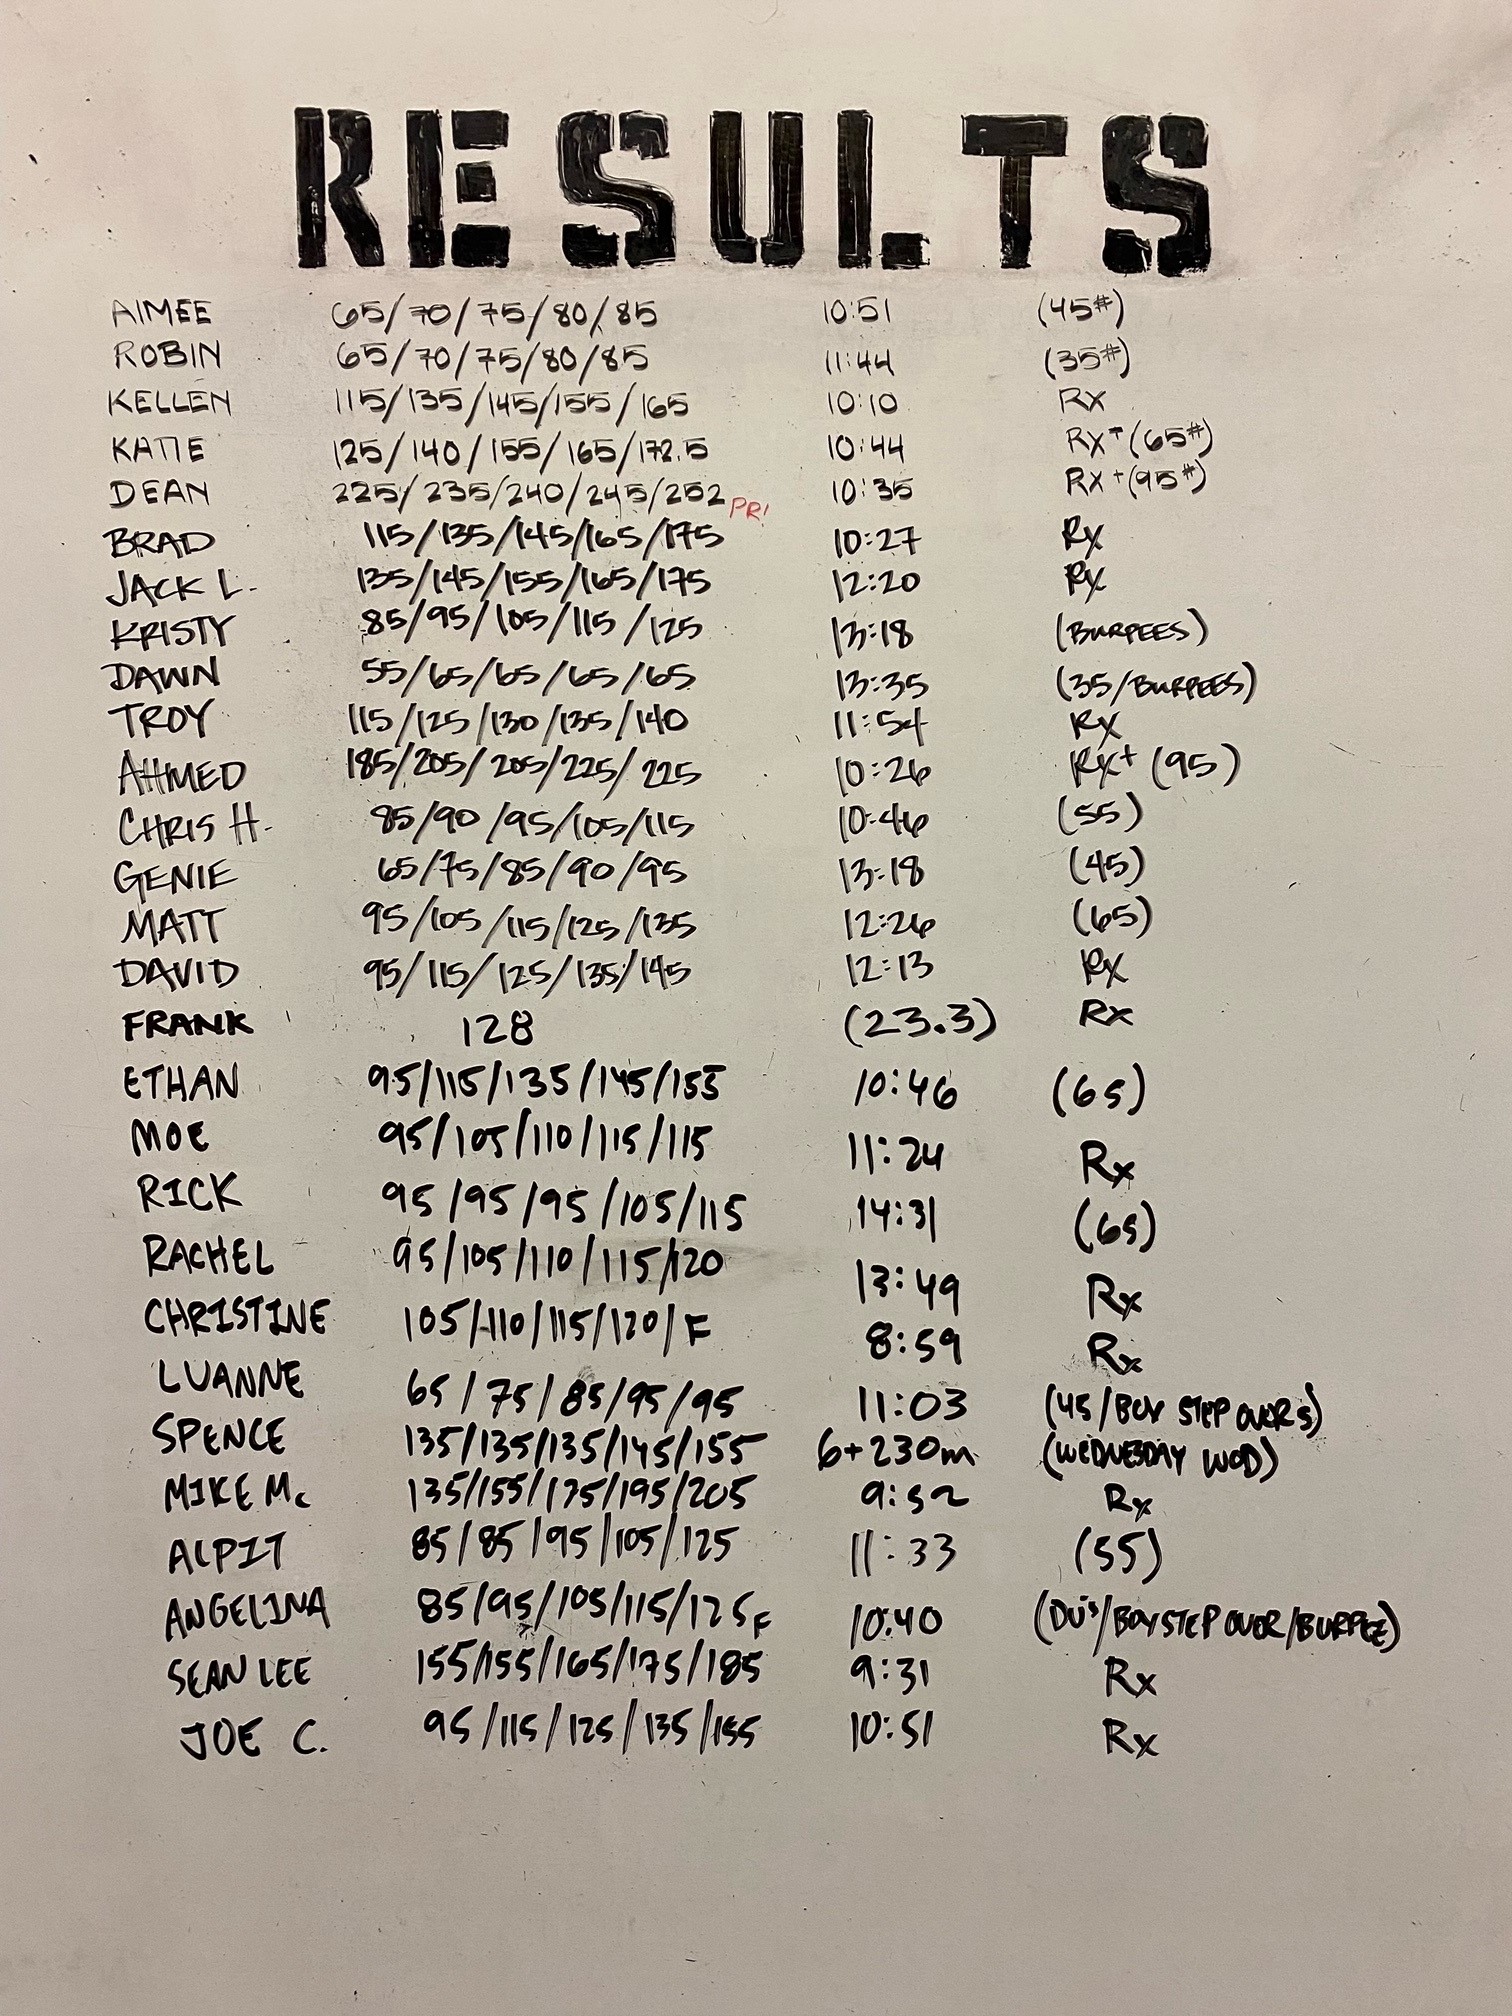 RESULTS
AIMEE 65/70/75/80/85 10:51 (45#)
ROBIN 65/70/75/80/85 11:44 (35#)
KELLEN 115/135/145/155/165 10:10 Rx
KATIE 125/140/155/165/172.5 10:44 Rx+(65#)
DEAN 225/235/240/245/252 PR! 10:35 Rx+(95#)
BRAD 115/135/145/165/175 10:27 Rx
JACK L. 135/145/155/165/175 12:20 Rx
KRISTY 85/95/105/115/125 13:18 (BURPEES)
DAWN 55/65/65/65/65 13:35 (35/BURPEES)
TROY 115/125/130/135/140 11:54 Rx
AHMED 185/205/205/225/225 10:26 Rx+ (95)
CHRIS H. 85/90/95/105/115 10:46 (55)
GENIE 65/75/85/90/95 13:18 (45)
MATT 95/105/115/125/135 12:26 (65)
DAVID 95/115/125/135/145 12:13 Rx
FRANK 128 (23.3) Rx
ETHAN 95/115/135/145/155 10:46 (65)
MOE 95/105/110/115/115 11:24 Rx
RICK 95/95/95/105/115 14:31 (65)
RACHEL 95/105/110/115/120 13:49 Rx
CHRISTINE 105/110/115/120/F 8:59 Rx
LUANNE 65/75/85/95/95 11:03 (45/BOX STEP OVERS)
SPENCE 135/135/135/145/155 6+230m (WEDNESDAY WOD)
MIKE Mc 135/155/175/195/205 9:52 Rx
ALPIT 85/85/95/105/125 11:33 (55)
ANGELINA 85/95/105/115/125F 10:40 (DU's/BOX STEP OVER/BURPEE)
SEAN LEE 155/155/165/175/185 9:31 Rx
JOE C. 95/115/125/135/155 10:51 Rx